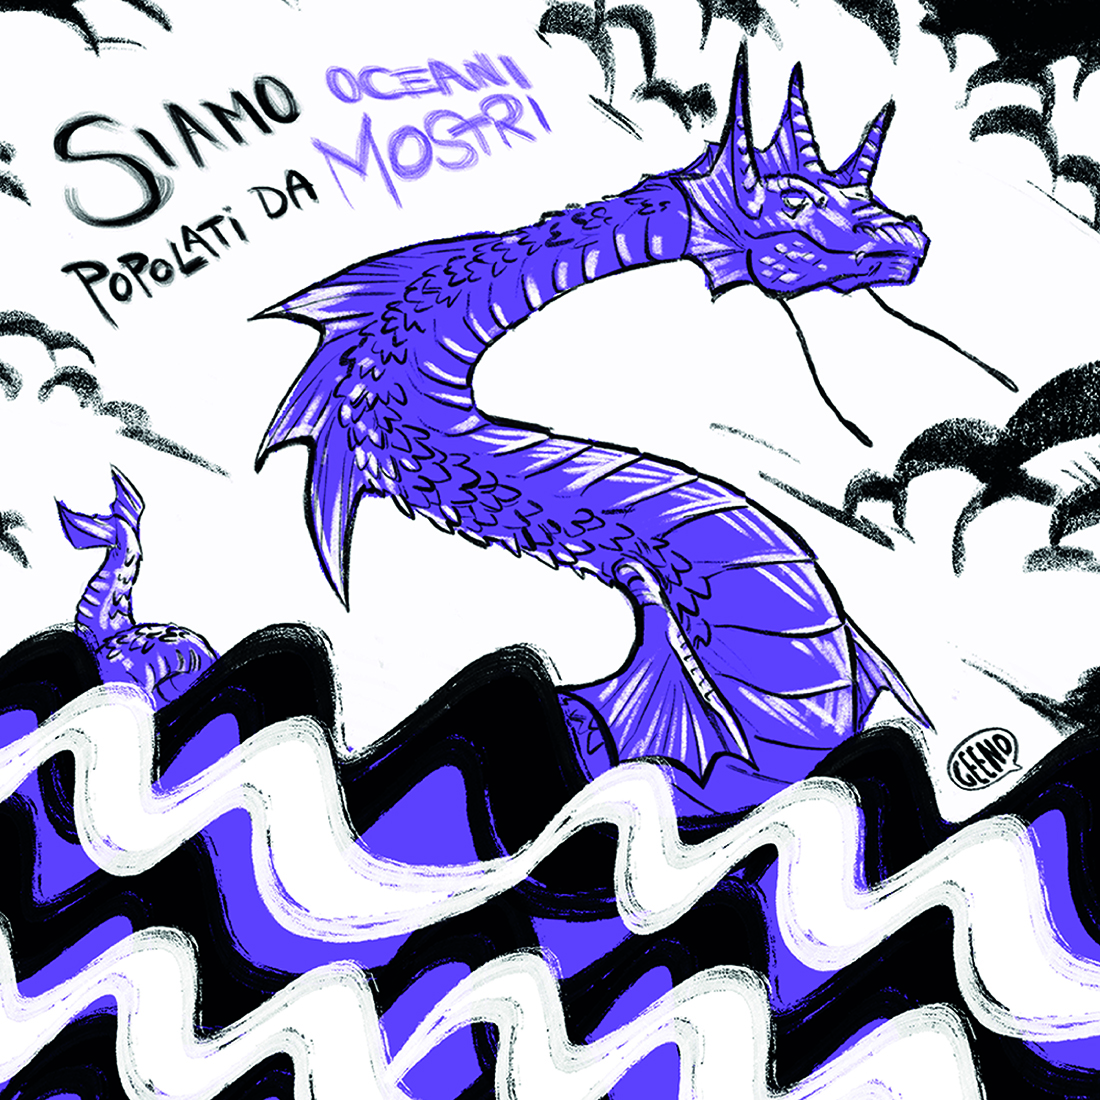 SIAMO OCEANI
POPOLATI DA MOSTRI
GEENO